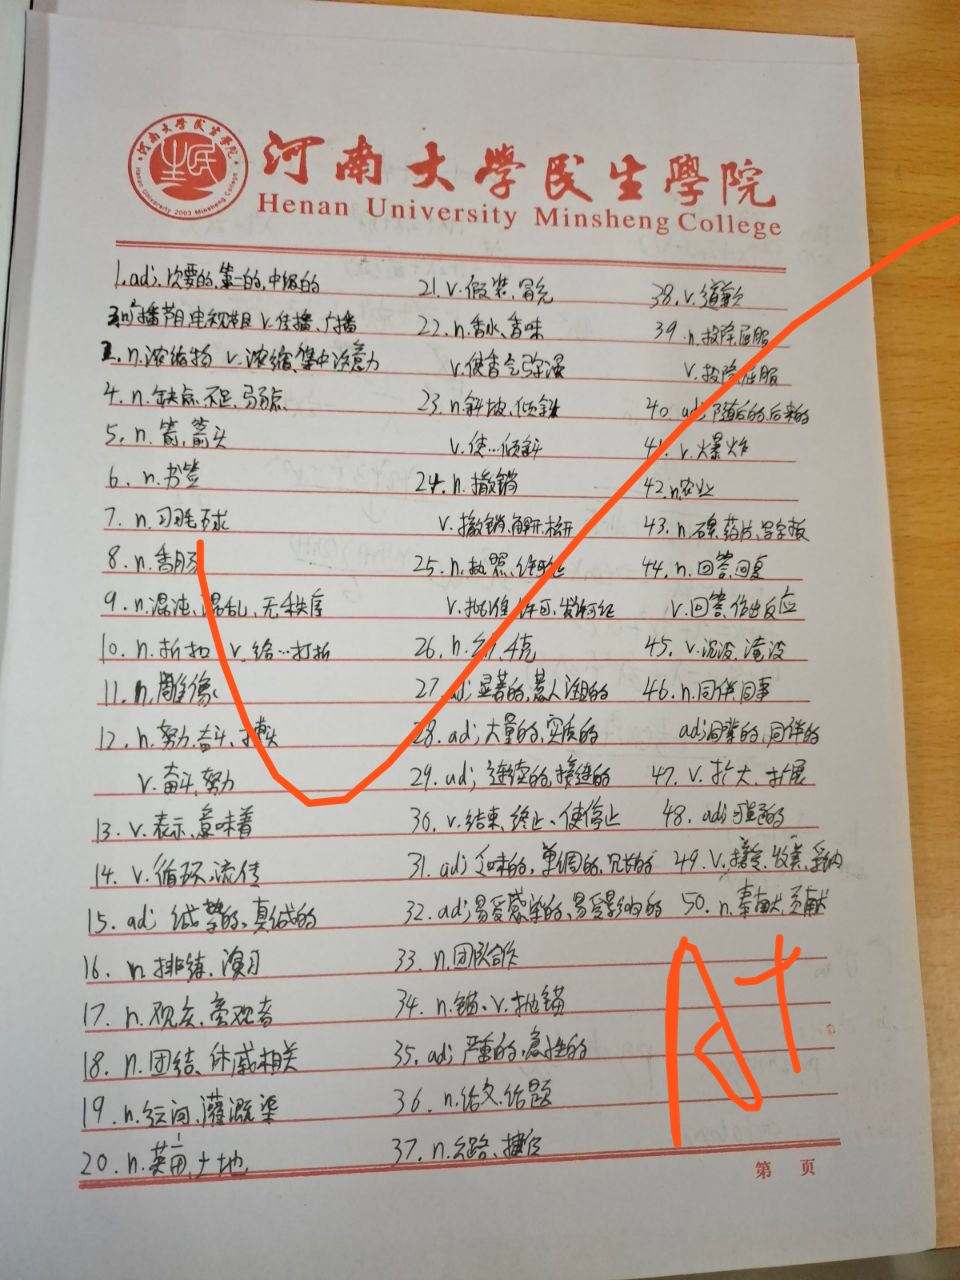 河南大学民生學院
Henan University Minsheng College
1. adj. 次要的, 第二的, 中级的
广播节目, 电视节目 v. 传播、广播
2. n. 浓缩物 v. 浓缩, 集中注意力
4. n. 缺点、不足, 弱点
5. n. 箭, 箭头
6. n. 书签
7. n. 羽毛球
8. n. 香肠
9. n. 混沌、混乱, 无秩序
10. n. 折扣 v. 给…打折
11. n. 雕像
12. n. 努力, 奋斗、
v. 奋斗, 努力
13. v. 表示、意味着
14. v. 循环, 流传
15. adj 诚挚的、真诚的
16. n. 排练、演习
17. n. 观众、旁观者
18. n. 团结、休戚相关
19. n. 灌溉渠
20. n. 英亩, 土地
21. v. 假装, 冒充
22. n. 香水、香味
v. 使香气弥漫
23. n. 斜坡, 倾斜
v. 使…倾斜
24. n. 撤销
v. 撤销, 解开, 松开
25. n. 执照、许可证
v. 批准, 许可, 发许可证
26. n.
27. adj 显著的, 惹人注目的
28. adj 大量的, 实质的
29. adj 连续的, 接连的
30. v. 结束, 终止、使停止
31. adj 乏味的, 单调的, 冗长的
32. adj 易受感染的, 易受影响的
33. n. 团队合作
34. n. 锚、v. 抛锚
35. adj 严重的, 急性的
36. n. 论文, 论题
37. n. 公路、捷径
38. v. 道歉
39. n. 投降, 屈服
v. 投降, 屈服
40. adj 随后的, 后来的
41. v. 爆炸
42. n. 农业
43. n. 药片、写字板
44. n. 回答, 回复
v. 回答, 作出反应
45. v. 沉没, 淹没
46. n. 同伴, 同事
adj 同辈的, 同伴的
47. v. 扩大, 扩展
48. adj 可
49. v. 接受, 收养, 采纳
50. n. 奉献, 贡献
A+
第 页